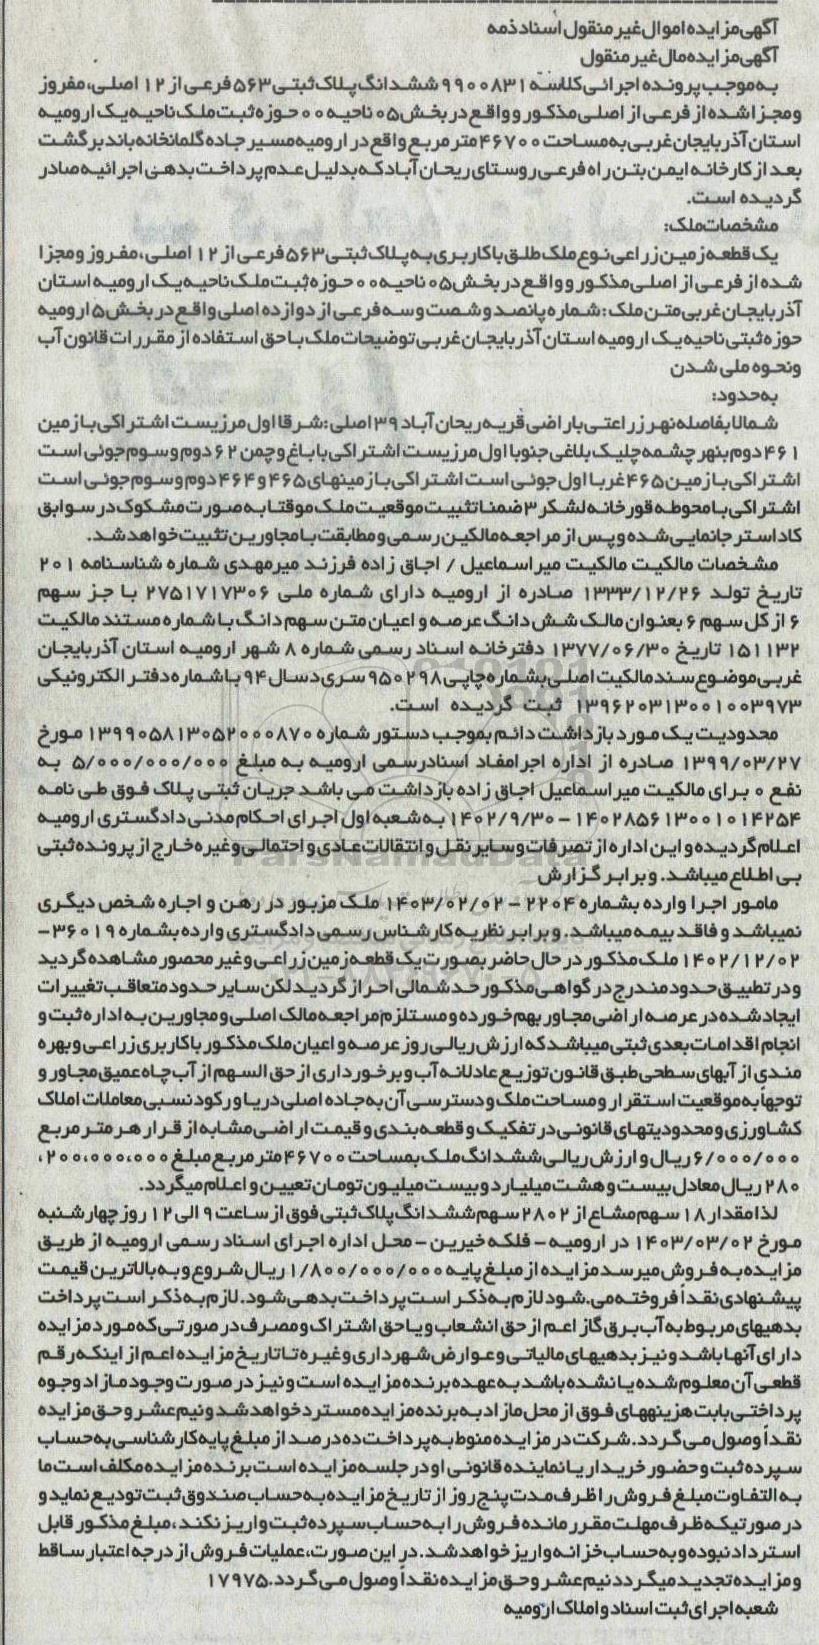 آگهی مزایده اموال غیر منقول اسناد ذمه
آگهی مزایده مال غیر منقول
به موجب پرونده اجرائی کلاسه ۹۹۰۰۸۳۱ ششدانگ پلاک ثبتی ۵۶۳ فرعی از ۱۲ اصلی، مفروز
و مجزا شده از فرعی از اصلی مذکور و واقع در بخش ۰۵ ناحیه ۰۰ حوزه ثبت ملک ناحیه یک ارومیه
استان آذربایجان غربی به مساحت ۴۶۷۰۰ متر مربع واقع در ارومیه مسیر جاده گلمانخانه باند برگشت
بعد از کارخانه ایمن بتن راه فرعی روستای ریحان آباد که بدلیل عدم پرداخت بدهی اجرائیه صادر
گردیده است.
مشخصات ملک:
یک قطعه زمین زراعی نوع ملک طلق با کاربری به پلاک ثبتی ۵۶۳ فرعی از ۱۲ اصلی، مفروز و مجزا
شده از فرعی از اصلی مذکور و واقع در بخش ۰۵ ناحیه ۰۰ حوزه ثبت ملک ناحیه یک ارومیه استان
آذربایجان غربی متن ملک: شماره پانصد و شصت و سه فرعی از دوازده اصلی واقع در بخش ۵ ارومیه
حوزه ثبتی ناحیه یک ارومیه استان آذربایجان غربی توضیحات ملک با حق استفاده از مقررات قانون آب
و نحوه ملی شدن
به حدود:
شمالا بفاصله نهر زراعتی باراضی قریه ریحان آباد ۳۹ اصلی: شرقا اول مرزیست اشتراکی با زمین
۴۶۱ دوم بنهر چشمه چلیک بلاغی جنوبا اول مرزیست اشتراکی با باغ و چمن ۶۲ دوم و سوم جوئی است
اشتراکی با زمین ۴۶۵ غربا اول جوئی است اشتراکی با زمینهای ۴۶۵ و ۴۶۴ دوم و سوم جوئی است
اشتراکی با محوطه قورخانه لشکر ۳ ضمنا تثبیت موقعیت ملک موقتا به صورت مشکوک در سوابق
کاداستر جانمایی شده و پس از مراجعه مالکین رسمی و مطابقت با مجاورین تثبیت خواهد شد.
مشخصات مالکیت مالکیت میر اسماعیل / اجاق زاده فرزند میرمهدی شماره شناسنامه ۲۰۱
تاریخ تولد ۱۳۳۳/۱۲/۲۶ صادره از ارومیه دارای شماره ملی ۲۷۵۱۷۱۷۳۰۶ با جز سهم
۶ از کل سهم ۶ بعنوان مالک شش دانگ عرصه و اعیان متن سهم دانگ با شماره مستند مالکیت
۱۵۱۱۳۲ تاریخ ۱۳۷۷/۰۶/۳۰ دفترخانه اسناد رسمی شماره ۸ شهر ارومیه استان آذربایجان
غربی موضوع سند مالکیت اصلی بشماره چاپی ۹۵۰۲۹۸ سری د سال ۹۴ با شماره دفتر الکترونیکی
۱۳۹۶۲۰۳۱۳۰۰۱۰۰۳۹۷۳ ثبت گردیده است.
محدودیت یک مورد بازداشت دائم بموجب دستور شماره ۱۳۹۹۰۵۸۱۳۰۵۲۰۰۰۸۷۰ مورخ
۱۳۹۹/۰۳/۲۷ صادره از اداره اجرا مفاد اسناد رسمی ارومیه به مبلغ ۵/۰۰۰/۰۰۰/۰۰۰ به
نفع ۰ برای مالکیت میر اسماعیل اجاق زاده بازداشت می باشد جریان ثبتی پلاک فوق طی نامه
۱۴۰۲۸۵۶۱۳۰۰۱۰۱۴۲۵۴ - ۱۴۰۲/۹/۳۰ به شعبه اول اجرای احکام مدنی دادگستری ارومیه
اعلام گردیده و این اداره از تصرفات و سایر نقل و انتقالات عادی و احتمالی و غیره خارج از پرونده ثبتی
بی اطلاع میباشد. و برابر گزارش
مامور اجرا وارده بشماره ۲۲۰۴ - ۱۴۰۳/۰۲/۰۲ ملک مزبور در رهن و اجاره شخص دیگری
نمیباشد و فاقد بیمه میباشد. و برابر نظریه کارشناس رسمی دادگستری وارده بشماره ۳۶۰۱۹-
۱۴۰۲/۱۲/۰۲ ملک مذکور در حال حاضر بصورت یک قطعه زمین زراعی و غیر محصور مشاهده گردید
و در تطبیق حدود مندرج در گواهی مذکور حد شمالی احراز گردید لکن سایر حدود متعاقب تغییرات
ایجاد شده در عرصه اراضی مجاور بهم خورده و مستلزم مراجعه مالک اصلی و مجاورین به اداره ثبت و
انجام اقدامات بعدی ثبتی میباشد که ارزش ریالی روز عرصه و اعیان ملک مذکور با کاربری زراعی و بهره
مندی از آبهای سطحی طبق قانون توزیع عادلانه آب و برخورداری از حق السهم از آب چاه عمیق مجاور و
توجهاً به موقعیت استقرار و مساحت ملک و دسترسی آن به جاده اصلی دریا و رکود نسبی معاملات املاک
کشاورزی و محدودیتهای قانونی در تفکیک و قطعه بندی و قیمت اراضی مشابه از قرار هر متر مربع
۶/۰۰۰/۰۰۰ ریال و ارزش ریالی ششدانگ ملک بمساحت ۴۶۷۰۰ متر مربع مبلغ ۲۰۰,۰۰۰,۰۰۰,
۲۸۰ ریال معادل بیست و هشت میلیارد و بیست میلیون تومان تعیین و اعلام میگردد.
لذا مقدار ۱۸ سهم مشاع از ۲۸۰۲ سهم ششدانگ پلاک ثبتی فوق از ساعت ۹ الی ۱۲ روز چهارشنبه
مورخ ۱۴۰۳/۰۳/۰۲ در ارومیه - فلکه خیرین - محل اداره اجرای اسناد رسمی ارومیه از طریق
مزایده به فروش میرسد مزایده از مبلغ پایه ۱/۸۰۰/۰۰۰/۰۰۰ ریال شروع و به بالاترین قیمت
پیشنهادی نقداً فروخته می.شود لازم به ذکر است پرداخت بدهی شود. لازم به ذکر است پرداخت
بدهیهای مربوط به آب برق گاز اعم از حق انشعاب و یا حق اشتراک و مصرف در صورتی که مورد مزایده
دارای آنها باشد و نیز بدهیهای مالیاتی و عوارض شهرداری و غیره تا تاریخ مزایده اعم از اینکه رقم
قطعی آن معلوم شده یا نشده باشد به عهده برنده مزایده است و نیز در صورت وجود مازاد وجوه
پرداختی بابت هزینههای فوق از محل مازاد به برنده مزایده مسترد خواهد شد و نیم عشر و حق مزایده
نقداً وصول می گردد. شرکت در مزایده منوط به پرداخت ده درصد از مبلغ پایه کارشناسی به حساب
سپرده ثبت و حضور خریدار یا نماینده قانونی او در جلسه مزایده است برنده مزایده مکلف است ما
به التفاوت مبلغ فروش را ظرف مدت پنج روز از تاریخ مزایده به حساب صندوق ثبت تودیع نماید و
در صورتیکه ظرف مهلت مقرر مانده فروش را به حساب سپرده ثبت واریز نکند، مبلغ مذکور قابل
استرداد نبوده و به حساب خزانه واریز خواهد شد. در این صورت، عملیات فروش از درجه اعتبار ساقط
و مزایده تجدید میگردد نیم عشر و حق مزایده نقداً وصول می گردد. ۱۷۹۷۵
شعبه اجرای ثبت اسناد و املاک ارومیه